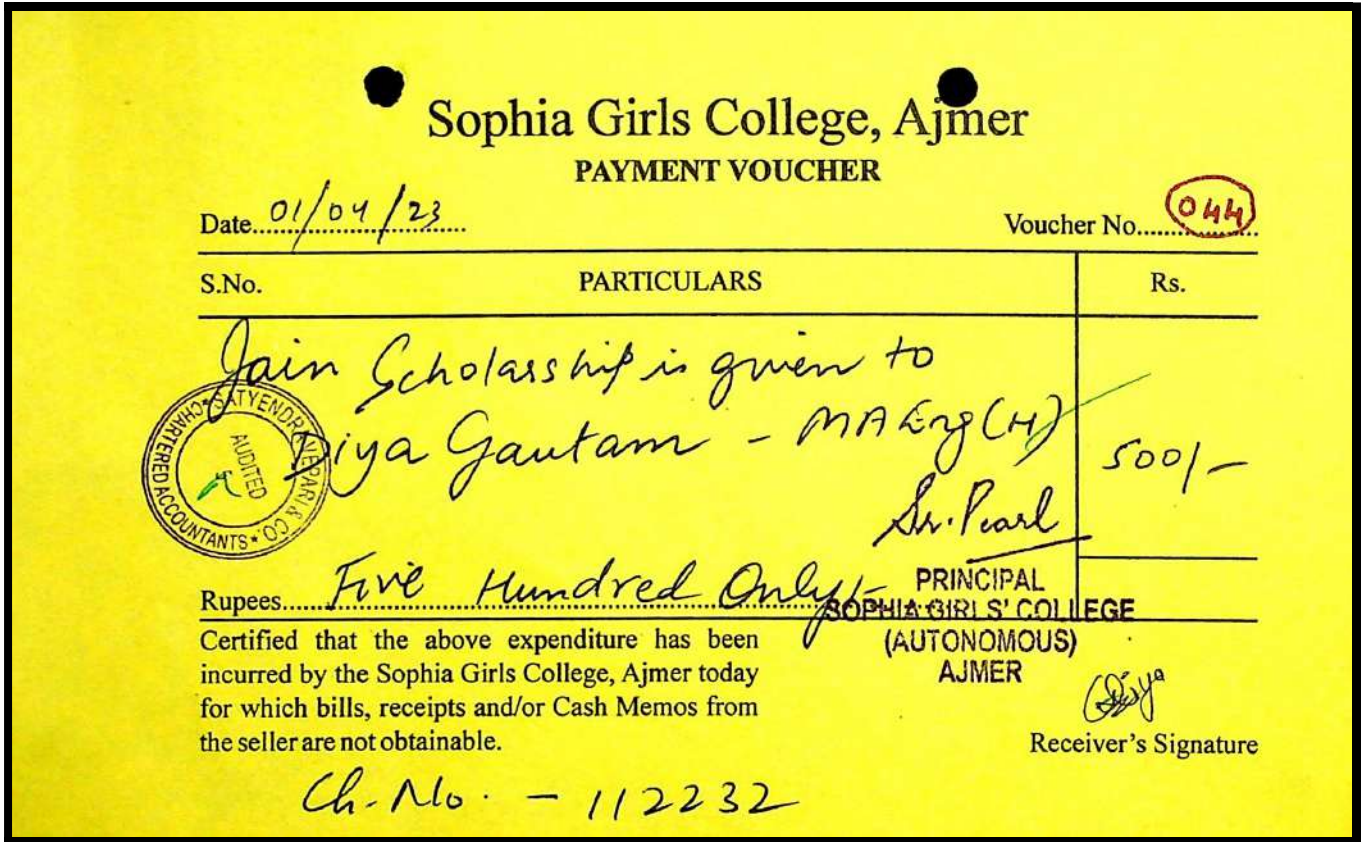 Sophia Girls College, Ajmer
PAYMENT VOUCHER
Date 01/04/23
Voucher No. 044
S.No. PARTICULARS Rs.
Jain Scholarship is given to
Diya Gautam - MA Eng (H)
500/-
SATYENDRA VEPARI & CO.
CHARTERED ACCOUNTANTS
AUDITED
Sr. Pearl
Rupees Five Hundred Only/-
PRINCIPAL
SOPHIA GIRLS' COLLEGE
(AUTONOMOUS)
AJMER
Certified that the above expenditure has been
incurred by the Sophia Girls College, Ajmer today
for which bills, receipts and/or Cash Memos from
the seller are not obtainable.
Diya
Receiver's Signature
Ch. No. - 112232